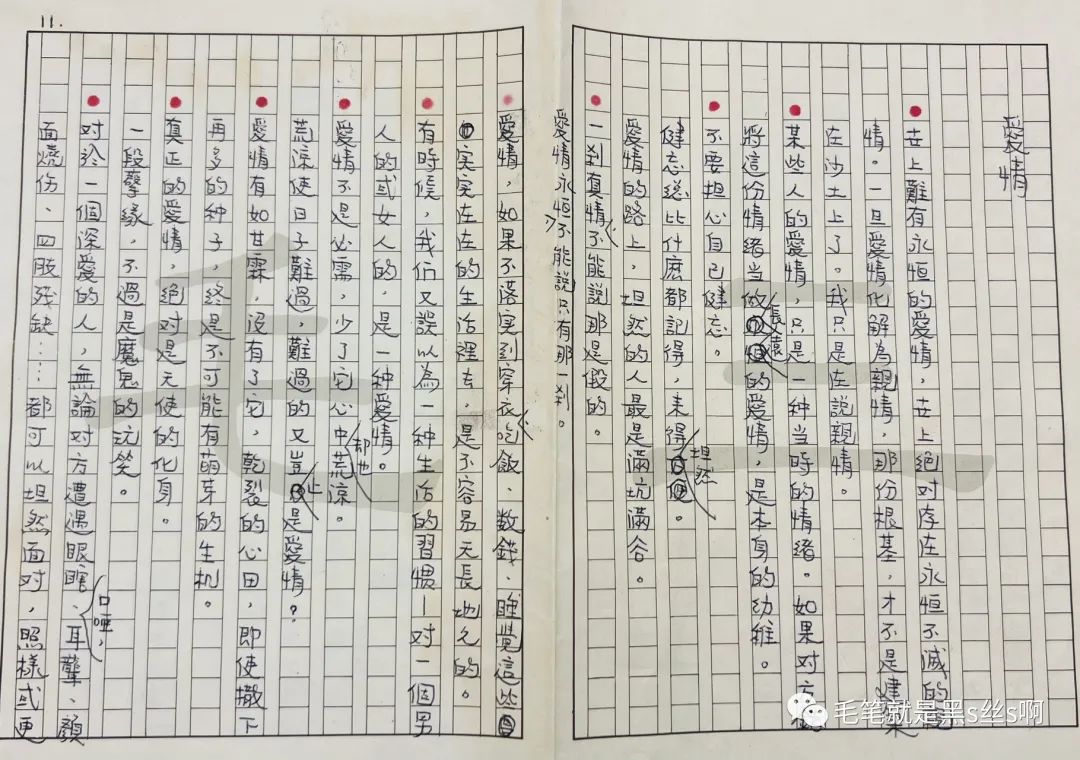 11.
愛情
世上難有永恒的愛情，世上絕对存在永恒不滅的親
情。一旦愛情化解為親情，那份根基，才不是建築
在沙土上了。我只是在說親情。
某些人的愛情，只是一种当時的情緒。如果对方
將這份情緒当做長遠的愛情，是本身的幼稚。
不要担心自己健忘。
健忘総比什麽都記得，来得坦然。
愛情的路上，坦然的人最是滿坑滿谷。
一刹真情不能說那是假的。
愛情永恒不能說只有那一刹。
愛情，如果不落实到穿衣吃飯、数錢、睡覺這些
实实在在的生活裡去，是不容易天長地久的。
有時候，我们又誤以為一种生活的習慣—对一個男
人的或女人的，是一种愛情。
愛情不是必需，少了它心中却也荒涼。
荒涼使日子難過，難過的又豈止是愛情？
愛情有如甘霖，没有了它，乾裂的心田，即使撒下
再多的种子，終是不可能有萌芽的生机。
真正的愛情，絕对是天使的化身。
一段孽緣，不過是魔鬼的玩笑。
对於一個深愛的人，無論对方遭遇眼瞎、口啞，耳聾、顏
面燒伤、四肢残缺……都可以坦然面对，照樣或更
毛笔就是黑s丝s啊